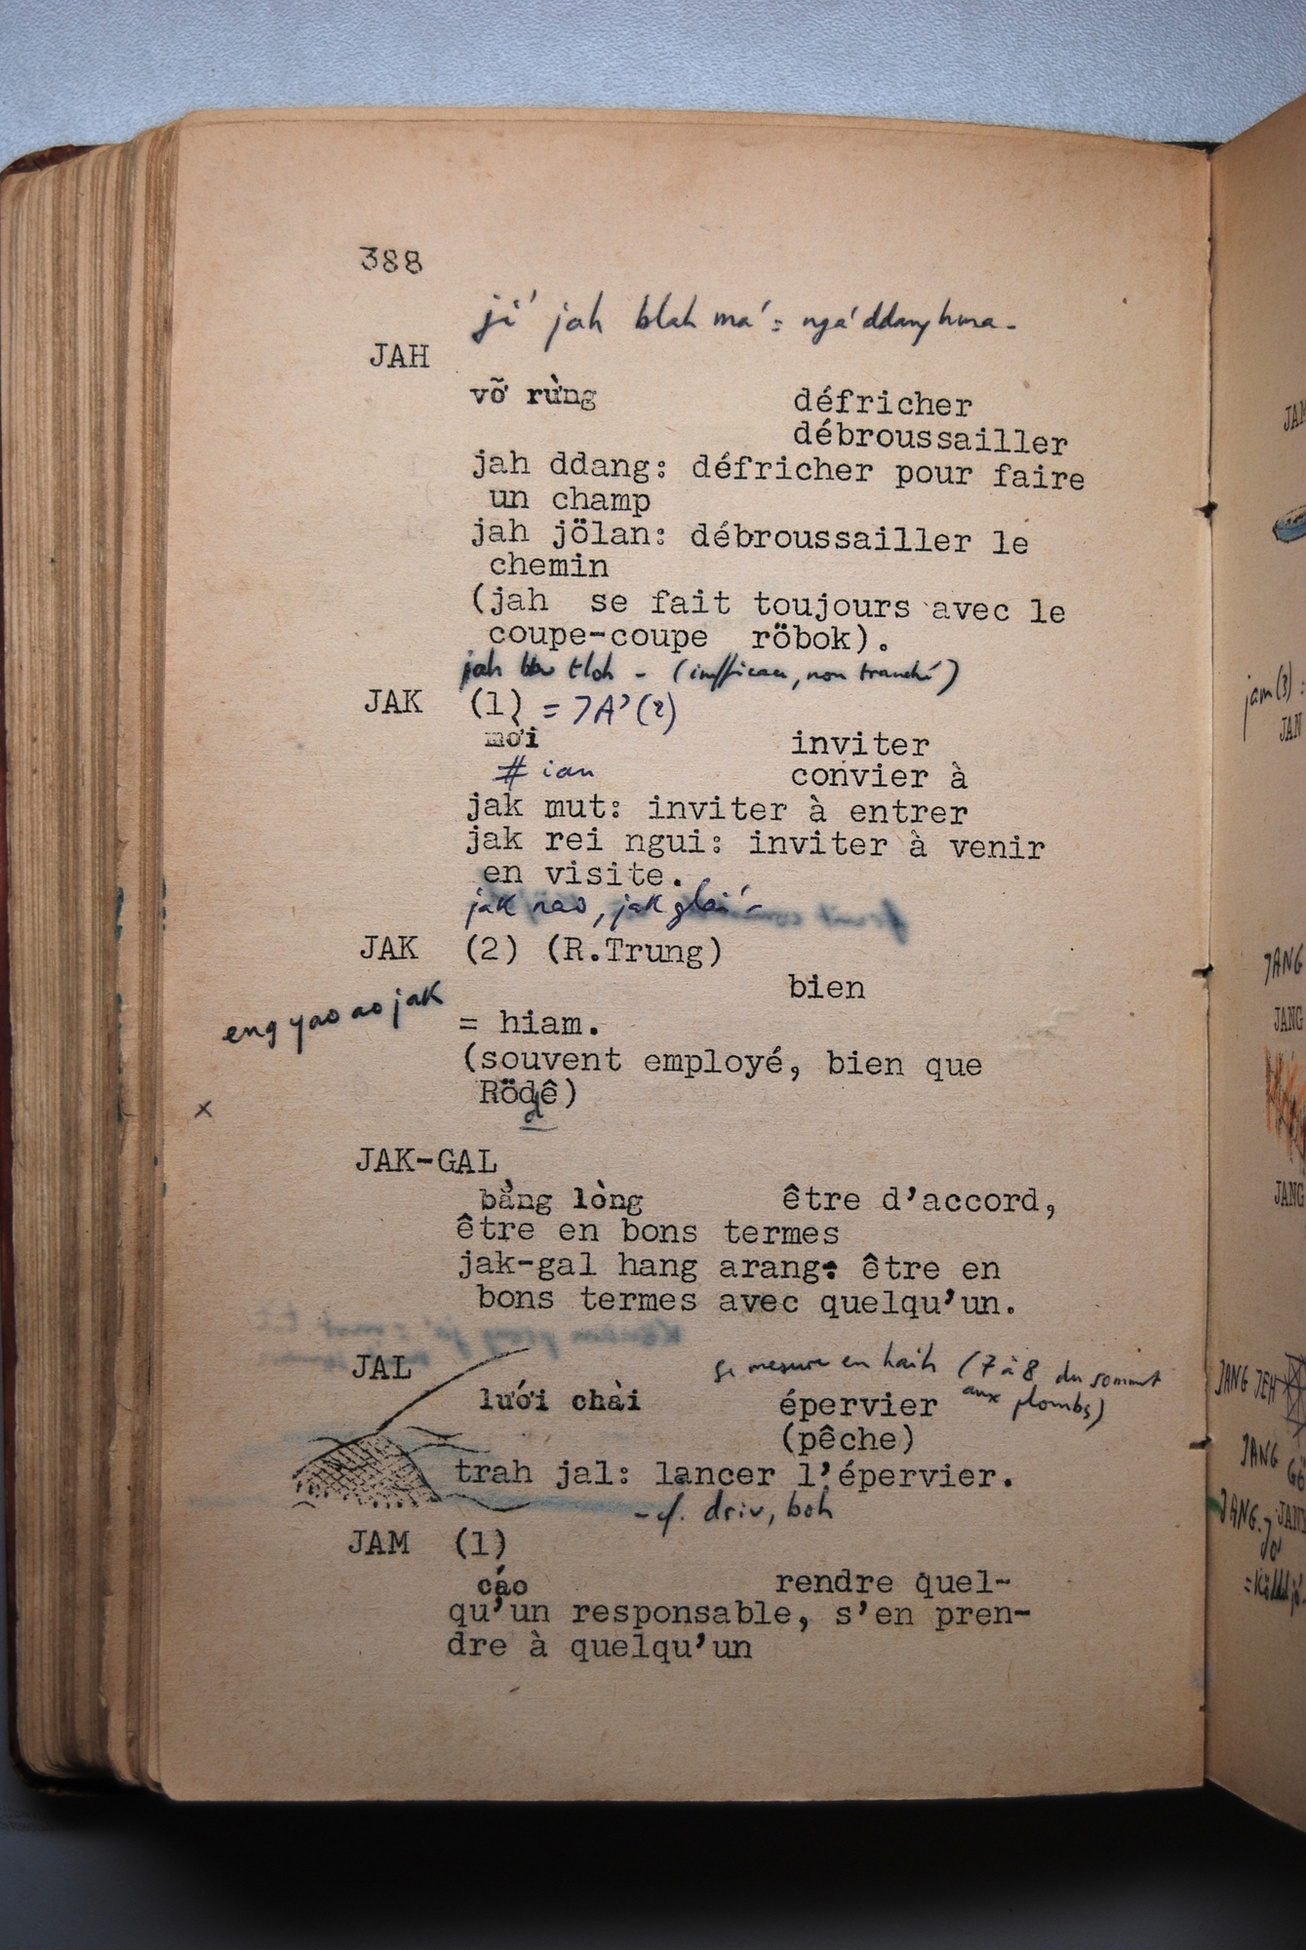 388
ji' jah blah ma' = ngá ddang hma -
JAH
vỡ rừng défricher
débroussailler
jah ddang: défricher pour faire
un champ
jah jölan: débroussailler le
chemin
(jah se fait toujours avec le
coupe-coupe röbok).
jah tloh - (inefficace, non tranché)
JAK (1) = JA'(2)
mời inviter
# ian convier à
jak mut: inviter à entrer
jak rei ngui: inviter à venir
en visite.
jak nao, jak glai -
JAK (2) (R.Trung)
bien
eng yao ao jak
= hiam.
(souvent employé, bien que
Rödê)
x
JAK-GAL
bằng lòng être d'accord,
être en bons termes
jak-gal hang arang: être en
bons termes avec quelqu'un.
JAL
se mesure en haih (7 à 8 du sommet
aux plombs)
lưới chài épervier
(pêche)
trah jal: lancer l'épervier.
- cf. driv, boh
JAM (1)
cáo rendre quel-
qu'un responsable, s'en pren-
dre à quelqu'un
jam(3) :
JAN
JANG
JANG
JANG
JANG JEH
JANG
JANG